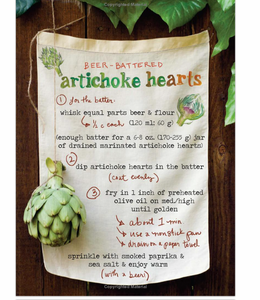 BEER-BATTERED
artichoke hearts
① for the batter:
whisk equal parts beer & flour
↳ ½ c each (120 ml; 60 g)
(enough batter for a 6-8 oz. (170-255 g) jar
of drained marinated artichoke hearts)
②
dip artichoke hearts in the batter
(coat evenly)
③ fry in 1 inch of preheated
olive oil on med/high
until golden
* about 1 min
* use a nonstick pan
* drain on a paper towel
sprinkle with smoked paprika &
sea salt & enjoy warm
(with a beer!)
Copyrighted Material